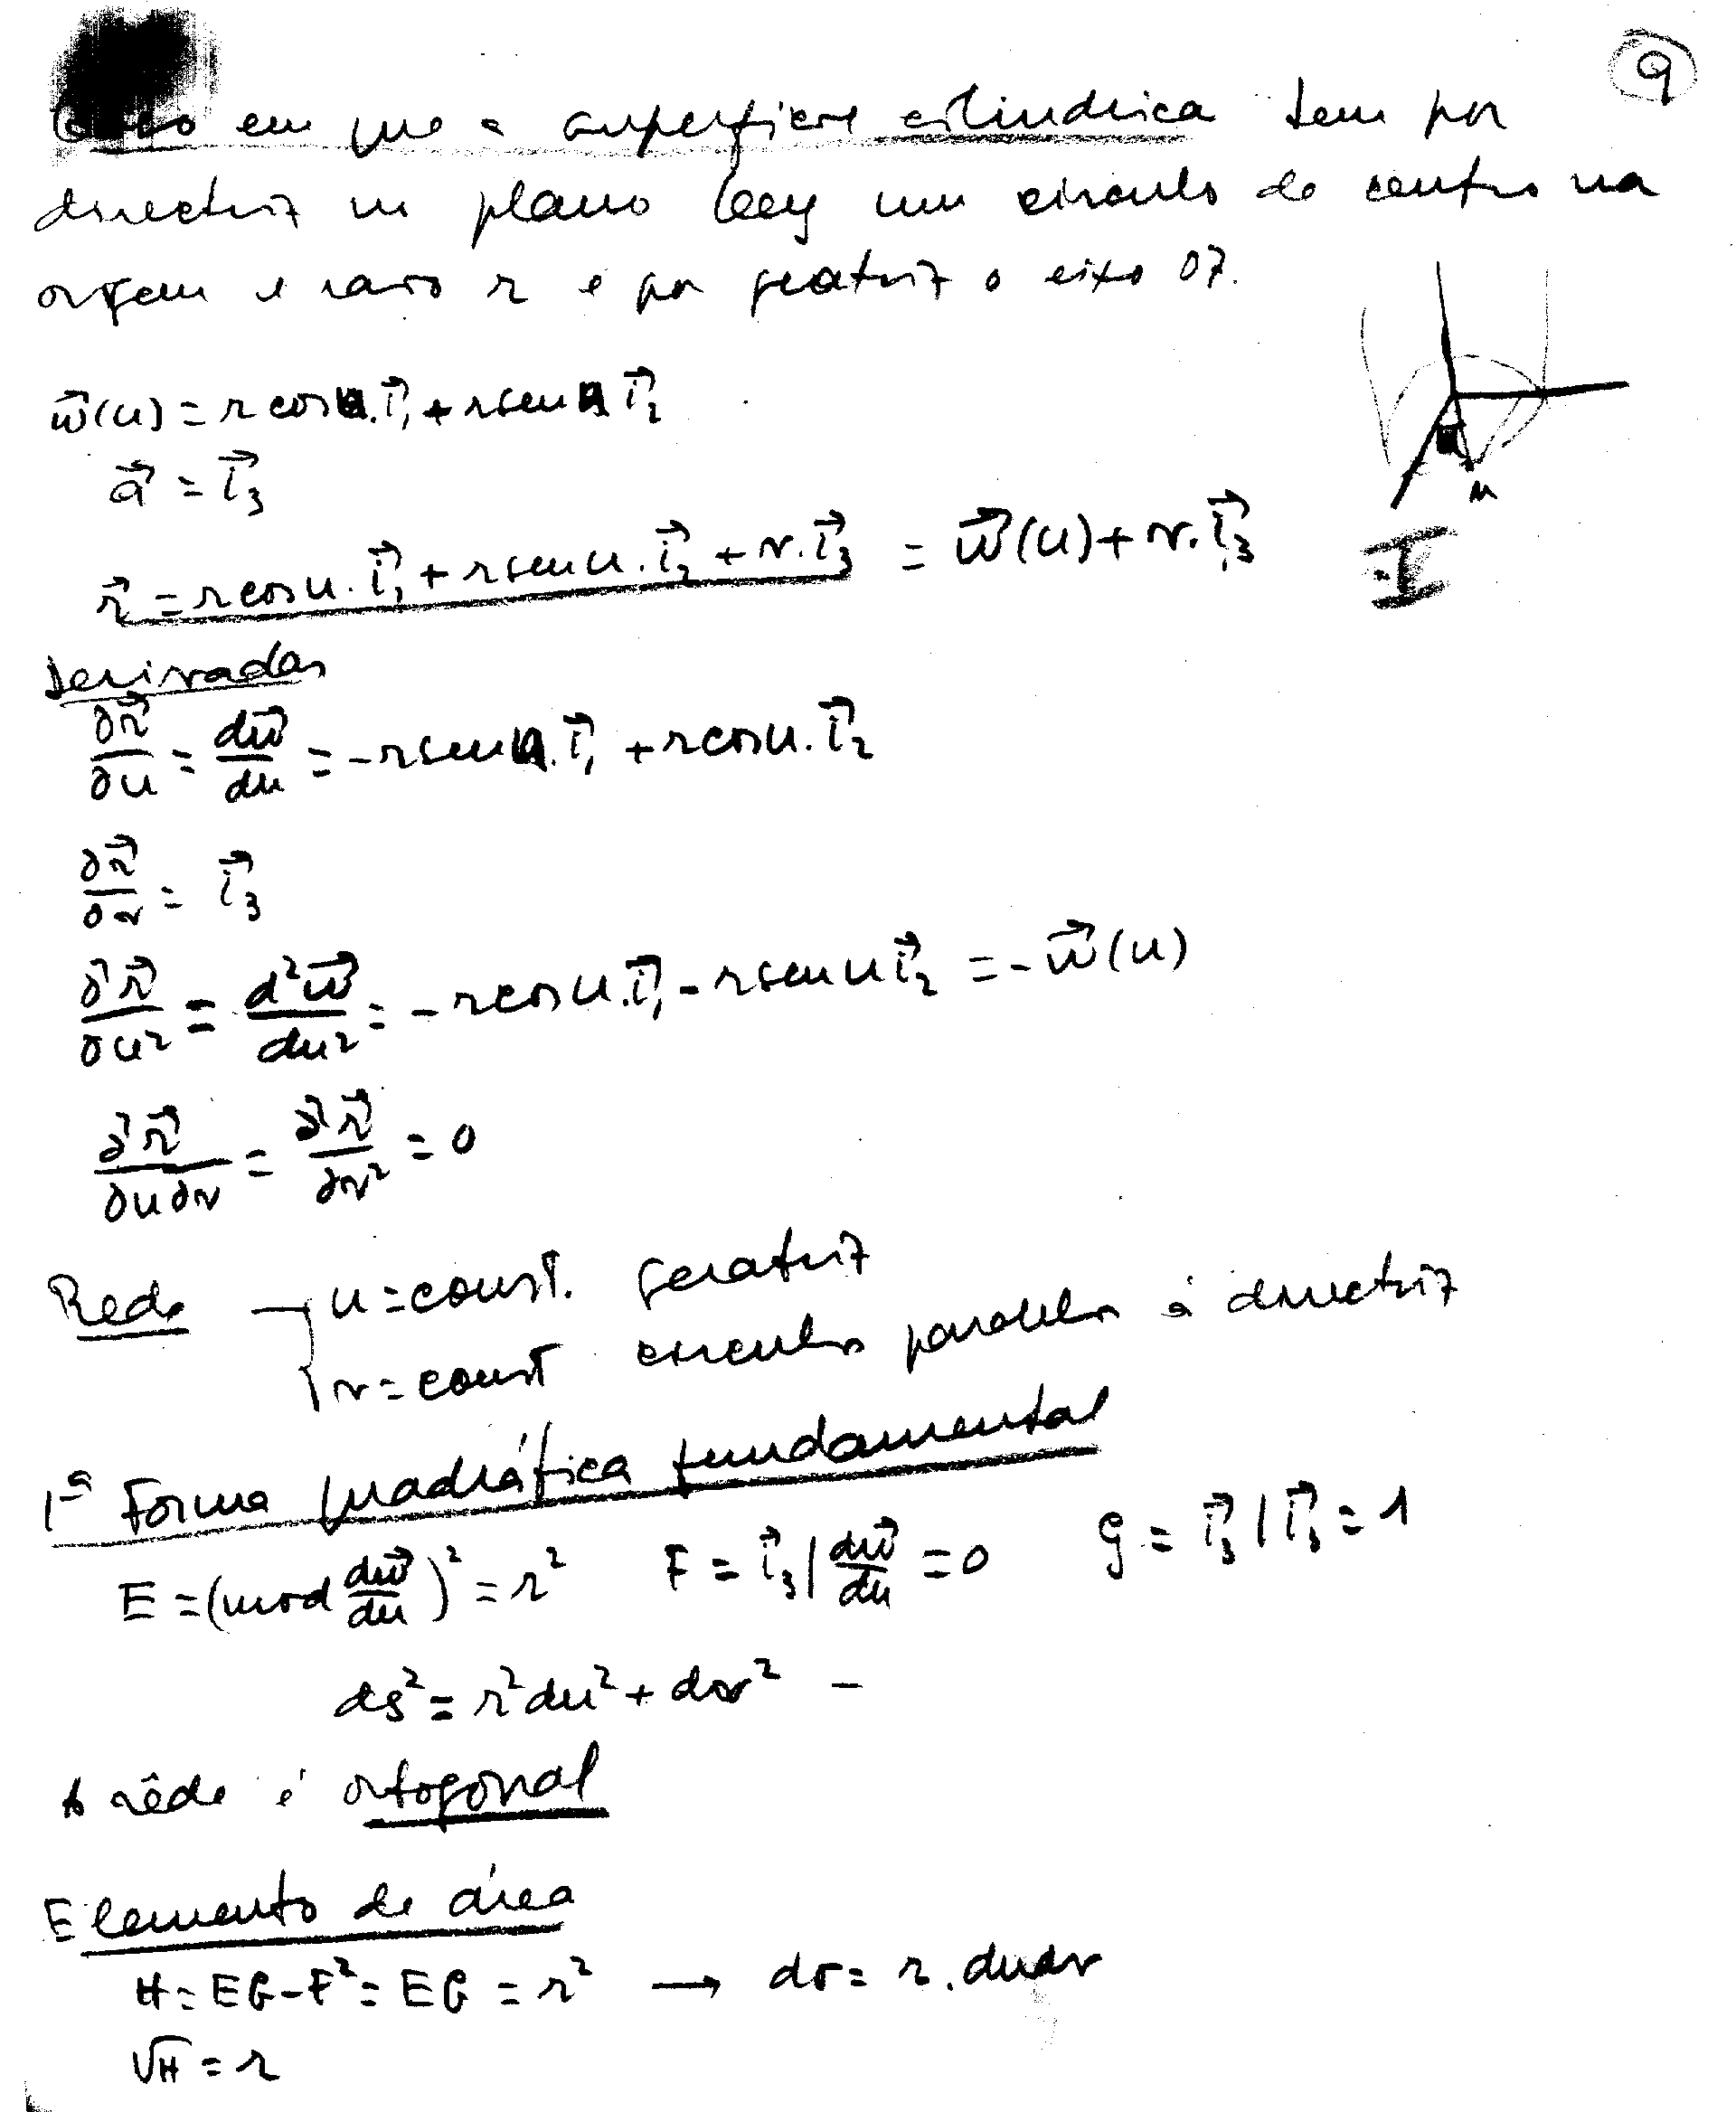 9
Caso em que a superfície cilíndrica tem por
directriz no plano Oxy um círculo de centro na
origem e raio r e por geratriz o eixo OZ.
w⃗(u) = r cos u . i⃗₁ + r sen u i⃗₂
a⃗ = i⃗₃
u
r⃗ = r cos u . i⃗₁ + r sen u . i⃗₂ + v . i⃗₃ = w⃗(u) + v . i⃗₃
I
Derivadas
∂r⃗/∂u = dw⃗/du = - r sen u . i⃗₁ + r cos u . i⃗₂
∂r⃗/∂v = i⃗₃
∂²r⃗/∂u² = d²w⃗/du² = - r cos u . i⃗₁ - r sen u i⃗₂ = - w⃗(u)
∂²r⃗/∂u∂v = ∂²r⃗/∂v² = 0
Rede → { u = const. geratriz
v = const círculos paralelos à directriz
1ª Forma quadrática fundamental
E = (mod dw⃗/du)² = r² F = i⃗₃ | dw⃗/du = 0 G = i⃗₃ | i⃗₃ = 1
ds² = r² du² + dv² -
A rêde é ortogonal
Elemento de área
H = EG - F² = EG = r² → dσ = r . du dv
√H = r